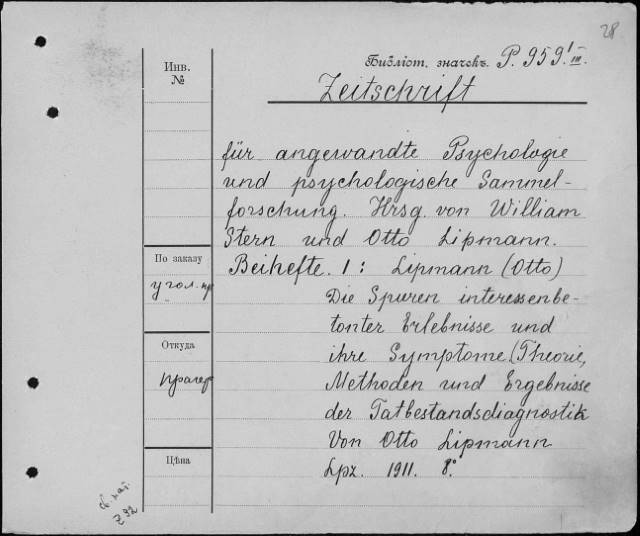 28
Инв.
№
Библіот. значекъ. P. 959 / III.
Zeitschrift
für angewandte Psychologie
und psychologische Sammel-
forschung. Hrsg. von William
Stern und Otto Lipmann.
По заказу
Beihefte. 1: Lipmann (Otto)
угол. пр
Die Spuren interessenbe-
tonter Erlebnisse und
Откуда
ihre Symptome (Theorie,
Прагер
Methoden und Ergebnisse
der Tatbestandsdiagnostik
Von Otto Lipmann
Цѣна
Lpz. 1911. 8°
Z 92